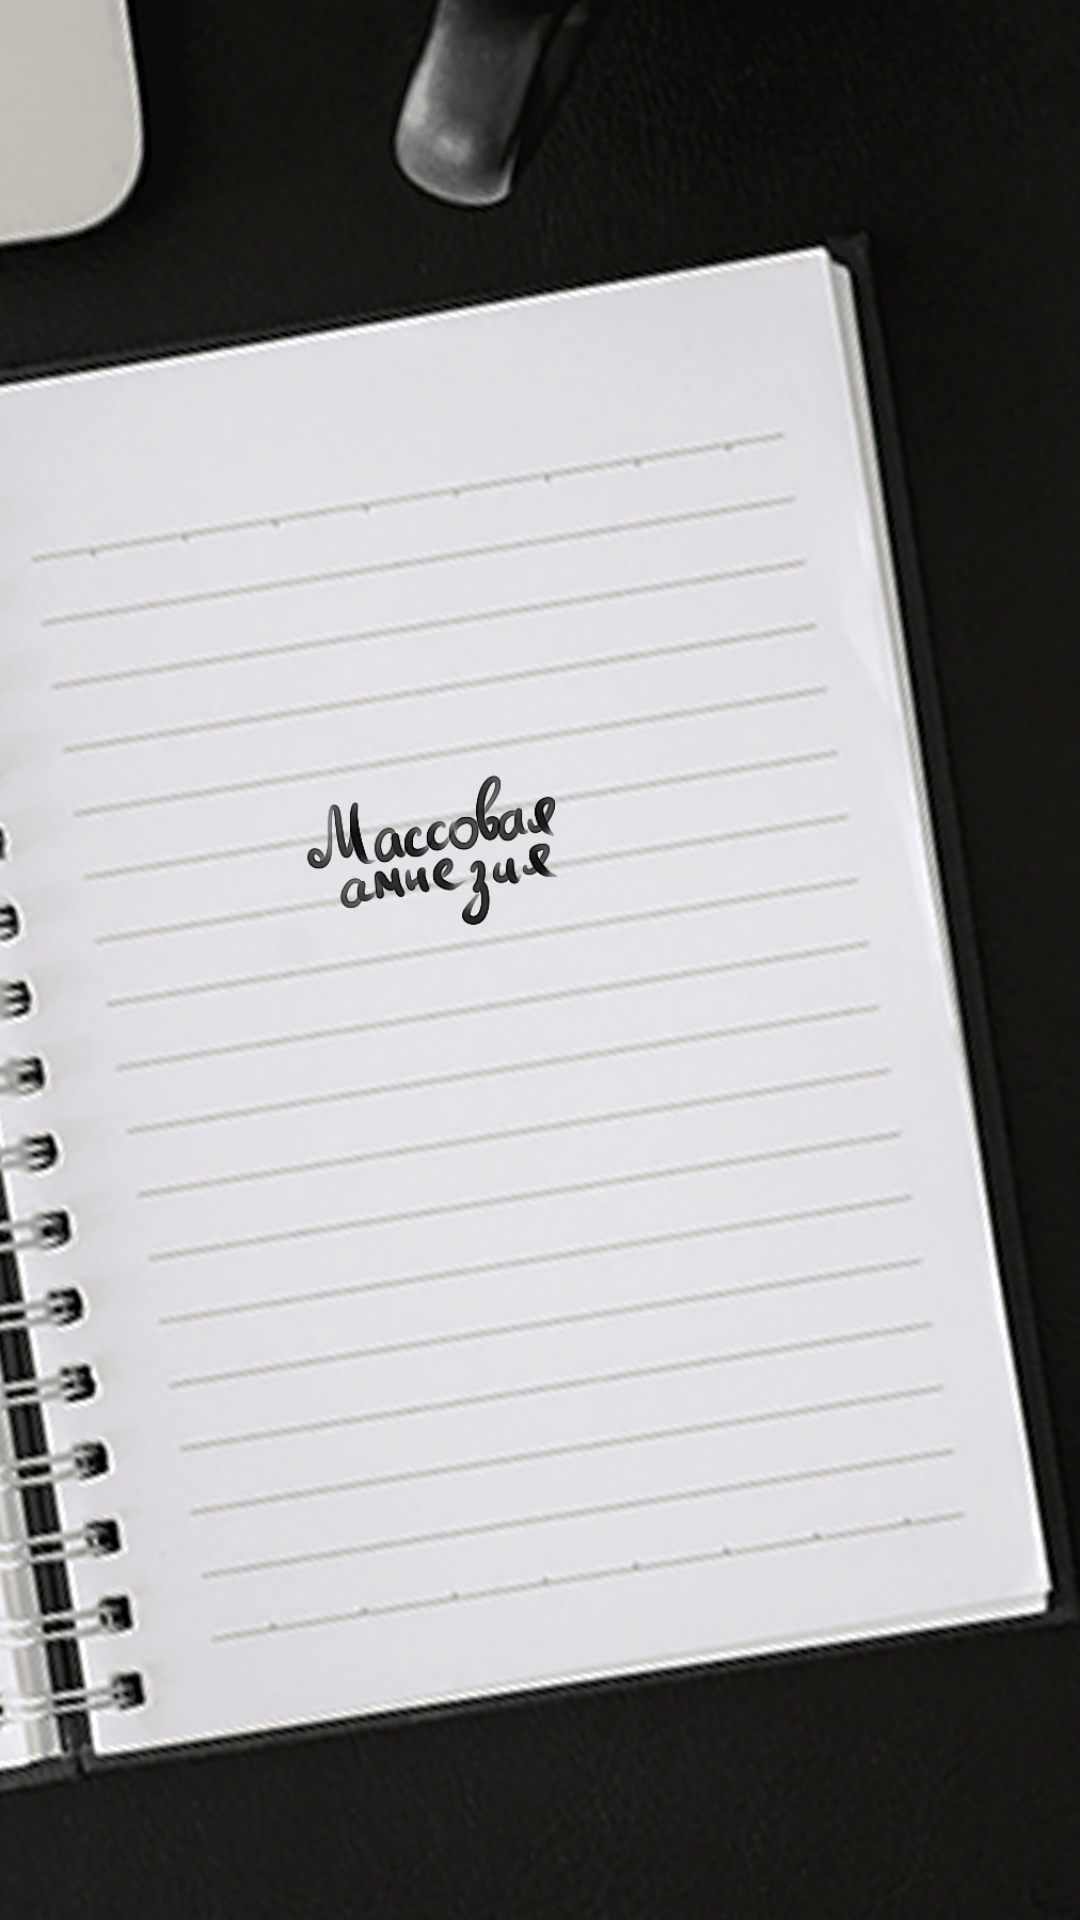 Массовая
амнезия